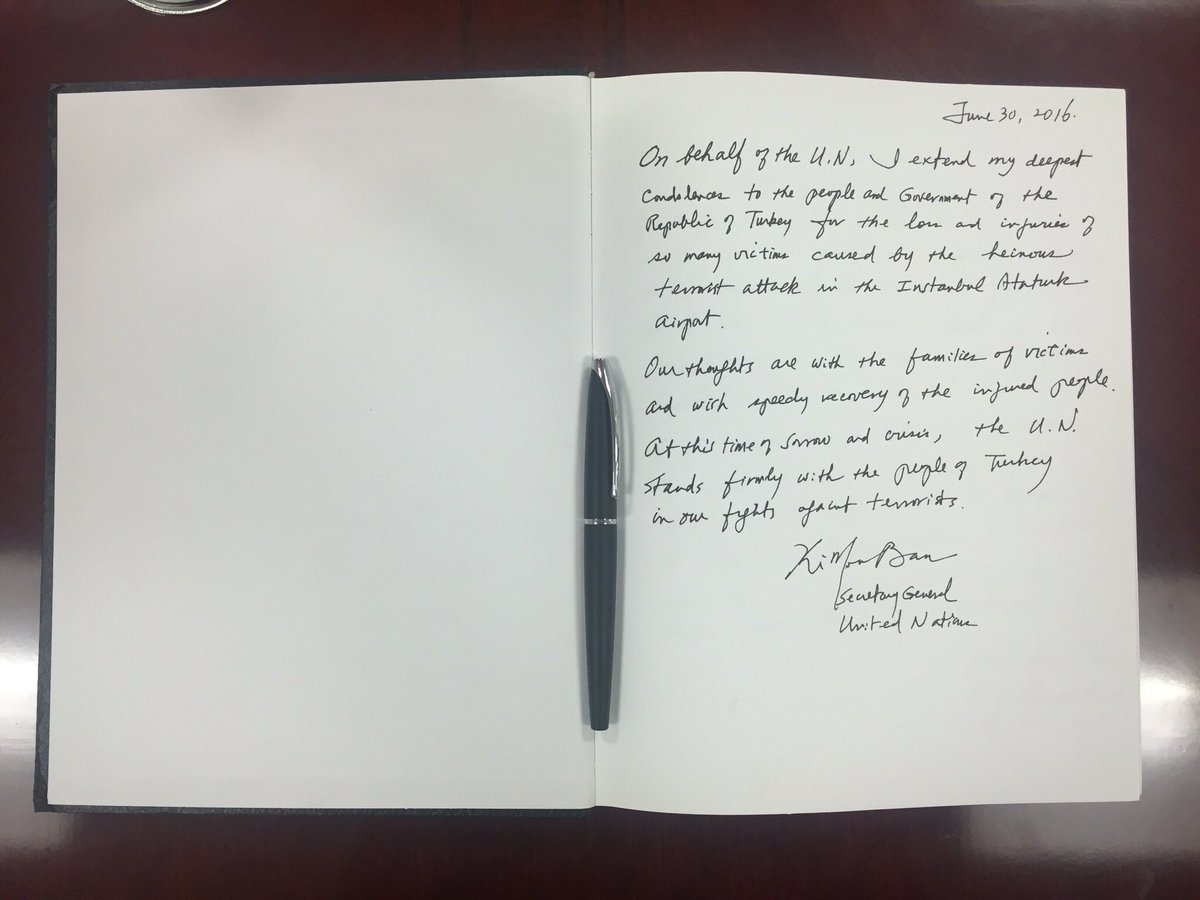 June 30, 2016.
On behalf of the U.N, I extend my deepest
condolences to the people and Government of the
Republic of Turkey for the loss and injuries of
so many victims caused by the heinous
terrorist attack in the Instanbul Ataturk
airport.
Our thoughts are with the families of victims
and wish speedy recovery of the injured people.
At this time of sorrow and crisis, the U.N.
stands firmly with the people of Turkey
in our fights against terrorists.
Ki Moon Ban
Secretary General
United Nations